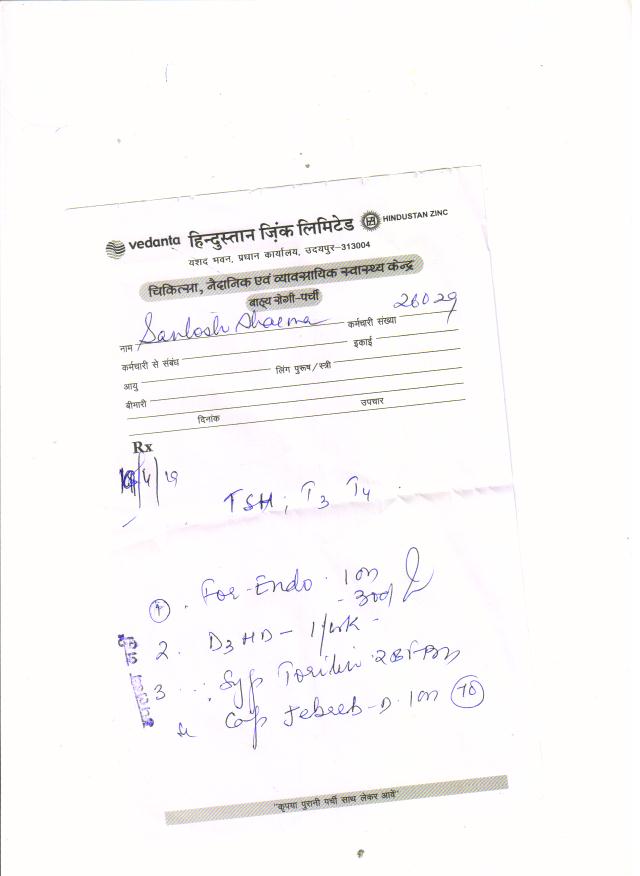 vedanta हिन्दुस्तान ज़िंक लिमिटेड HINDUSTAN ZINC
यशद भवन, प्रधान कार्यालय, उदयपुर-313004
चिकित्सा, नैदानिक एवं व्यावसायिक स्वास्थ्य केन्द्र
बाह्य रोगी-पर्ची
नाम Santosh Sharma कर्मचारी संख्या 26029
कर्मचारी से संबंध इकाई
आयु लिंग पुरूष/स्त्री
बीमारी
दिनांक उपचार
Rx
4/19
TSH; T3 T4
1. For-Endo. 1 on
2. D3 HD - 1/wk -
3 Syp
Cap 1 on 10
"कृपया पुरानी पर्ची साथ लेकर आवें"